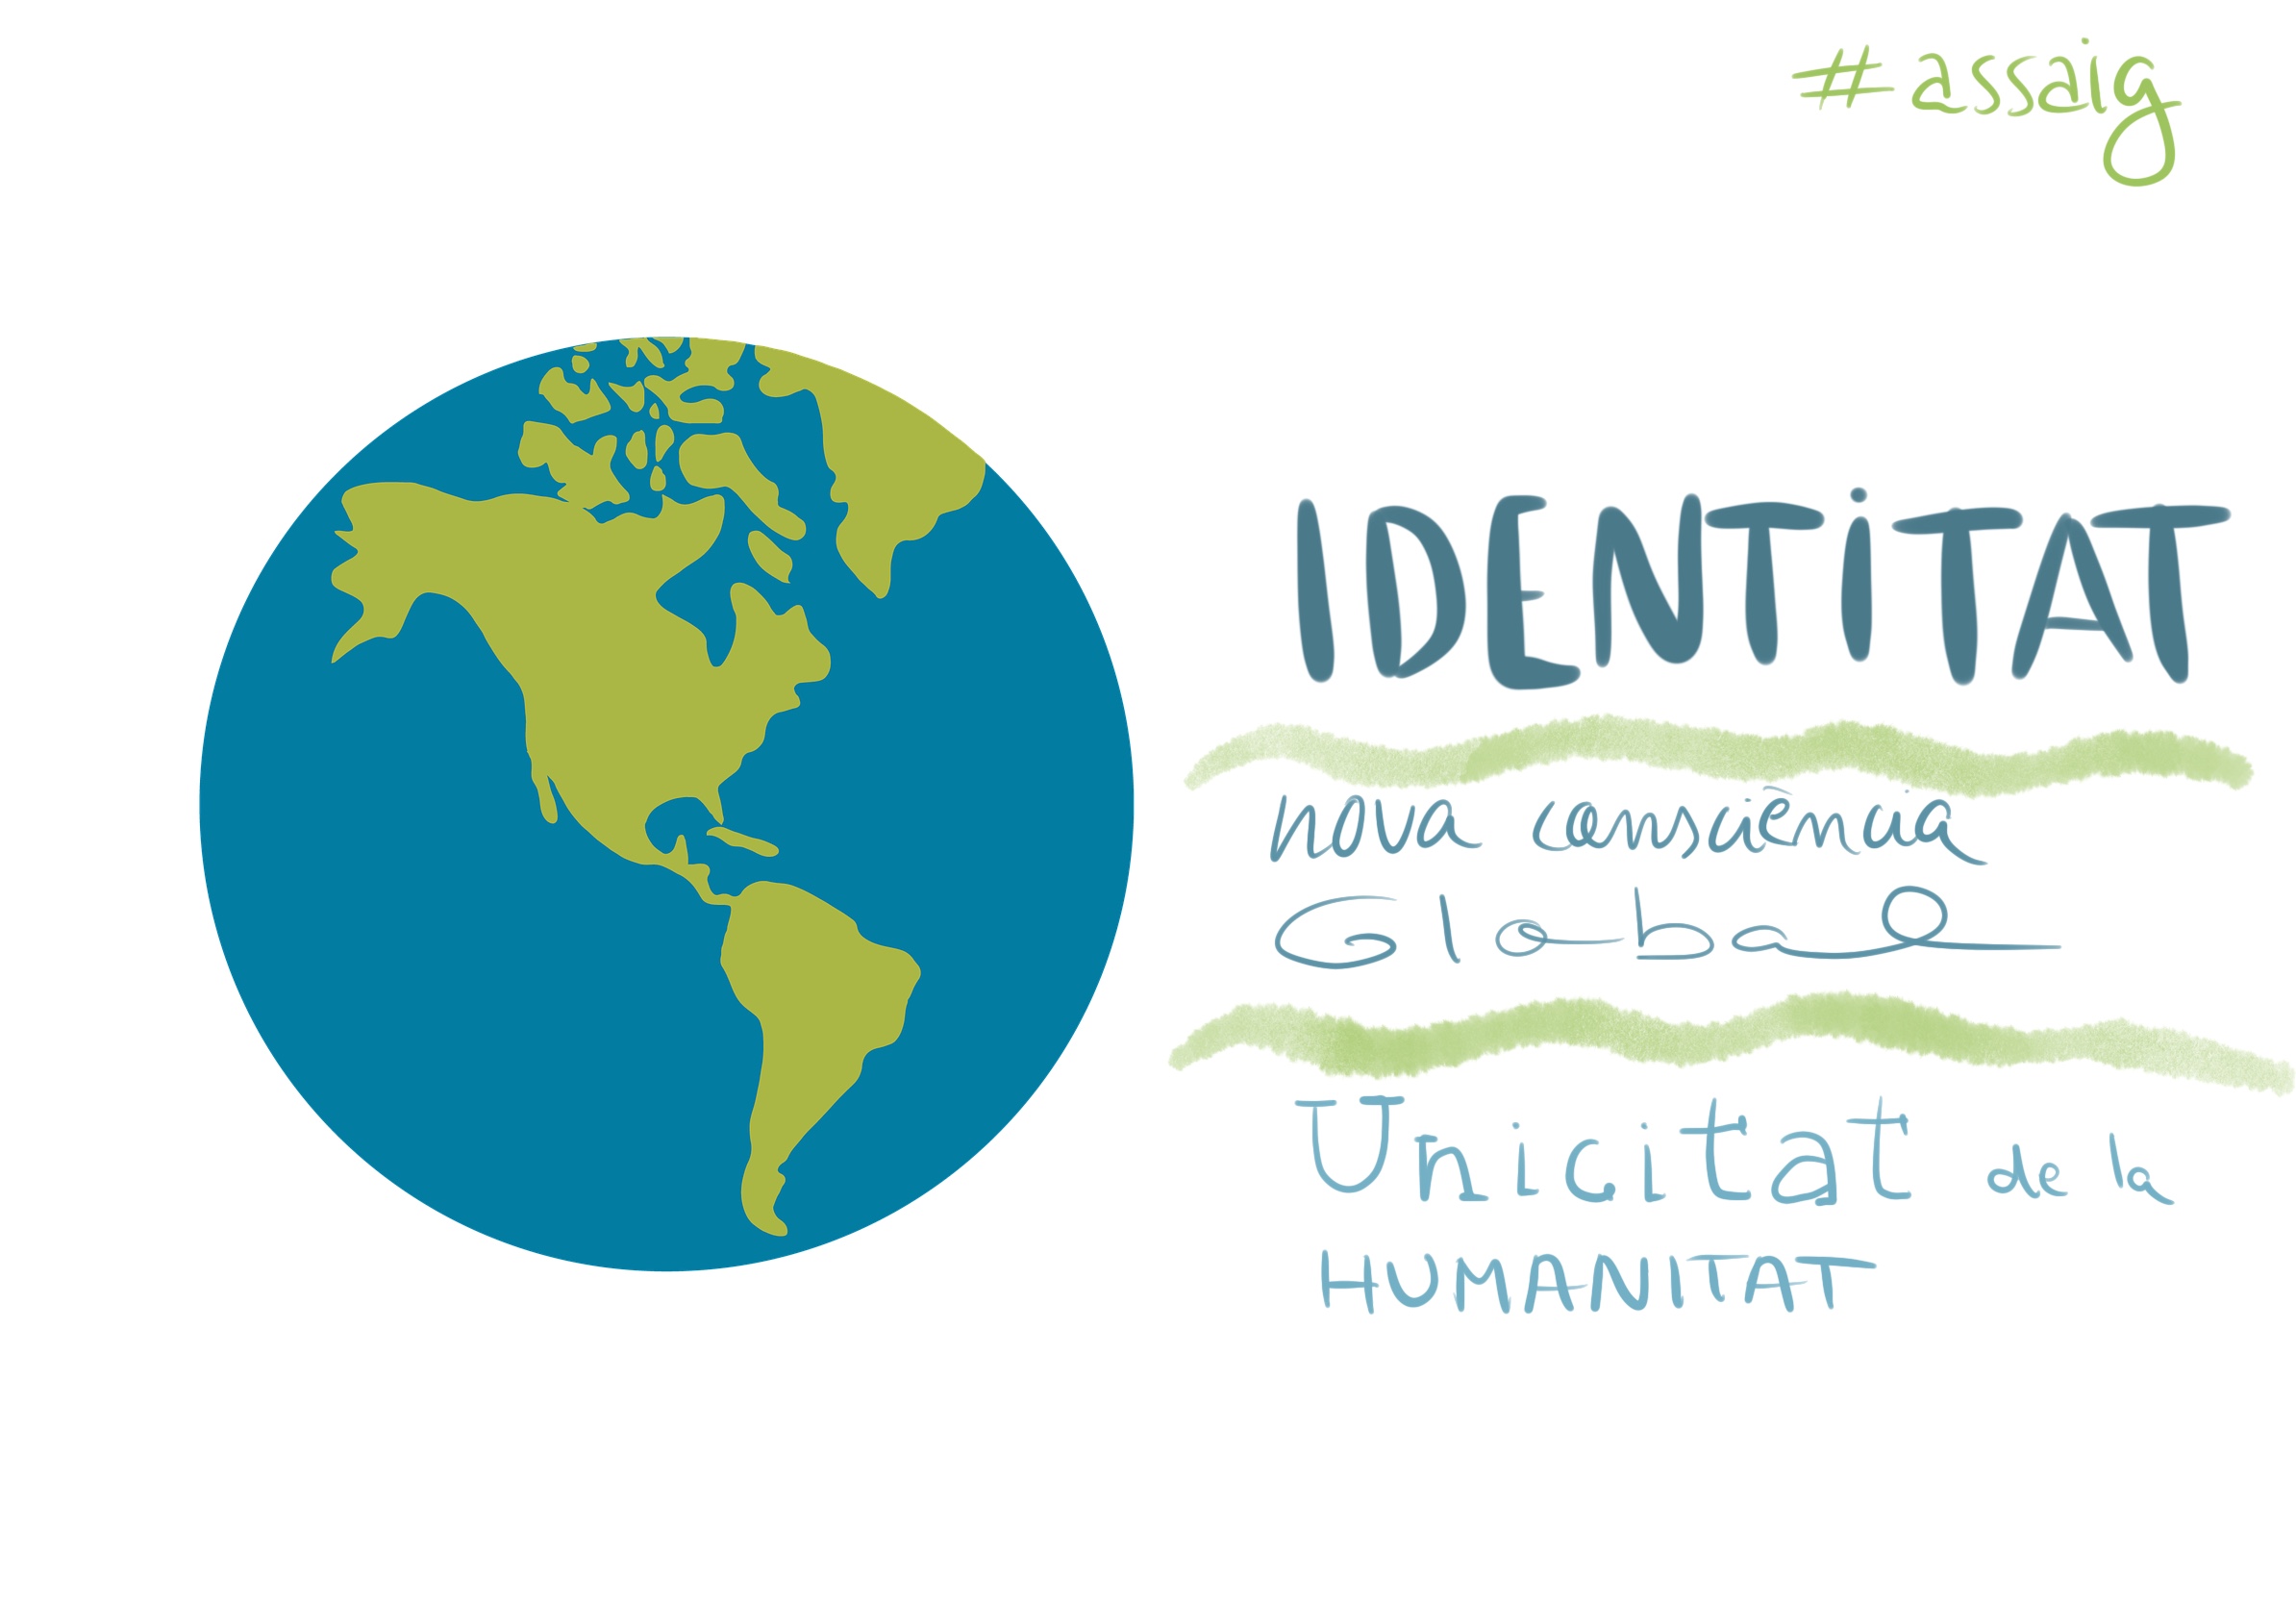 #assaig
IDENTiTAT
nova consciència
Global
Unicitat de la
HUMANITAT